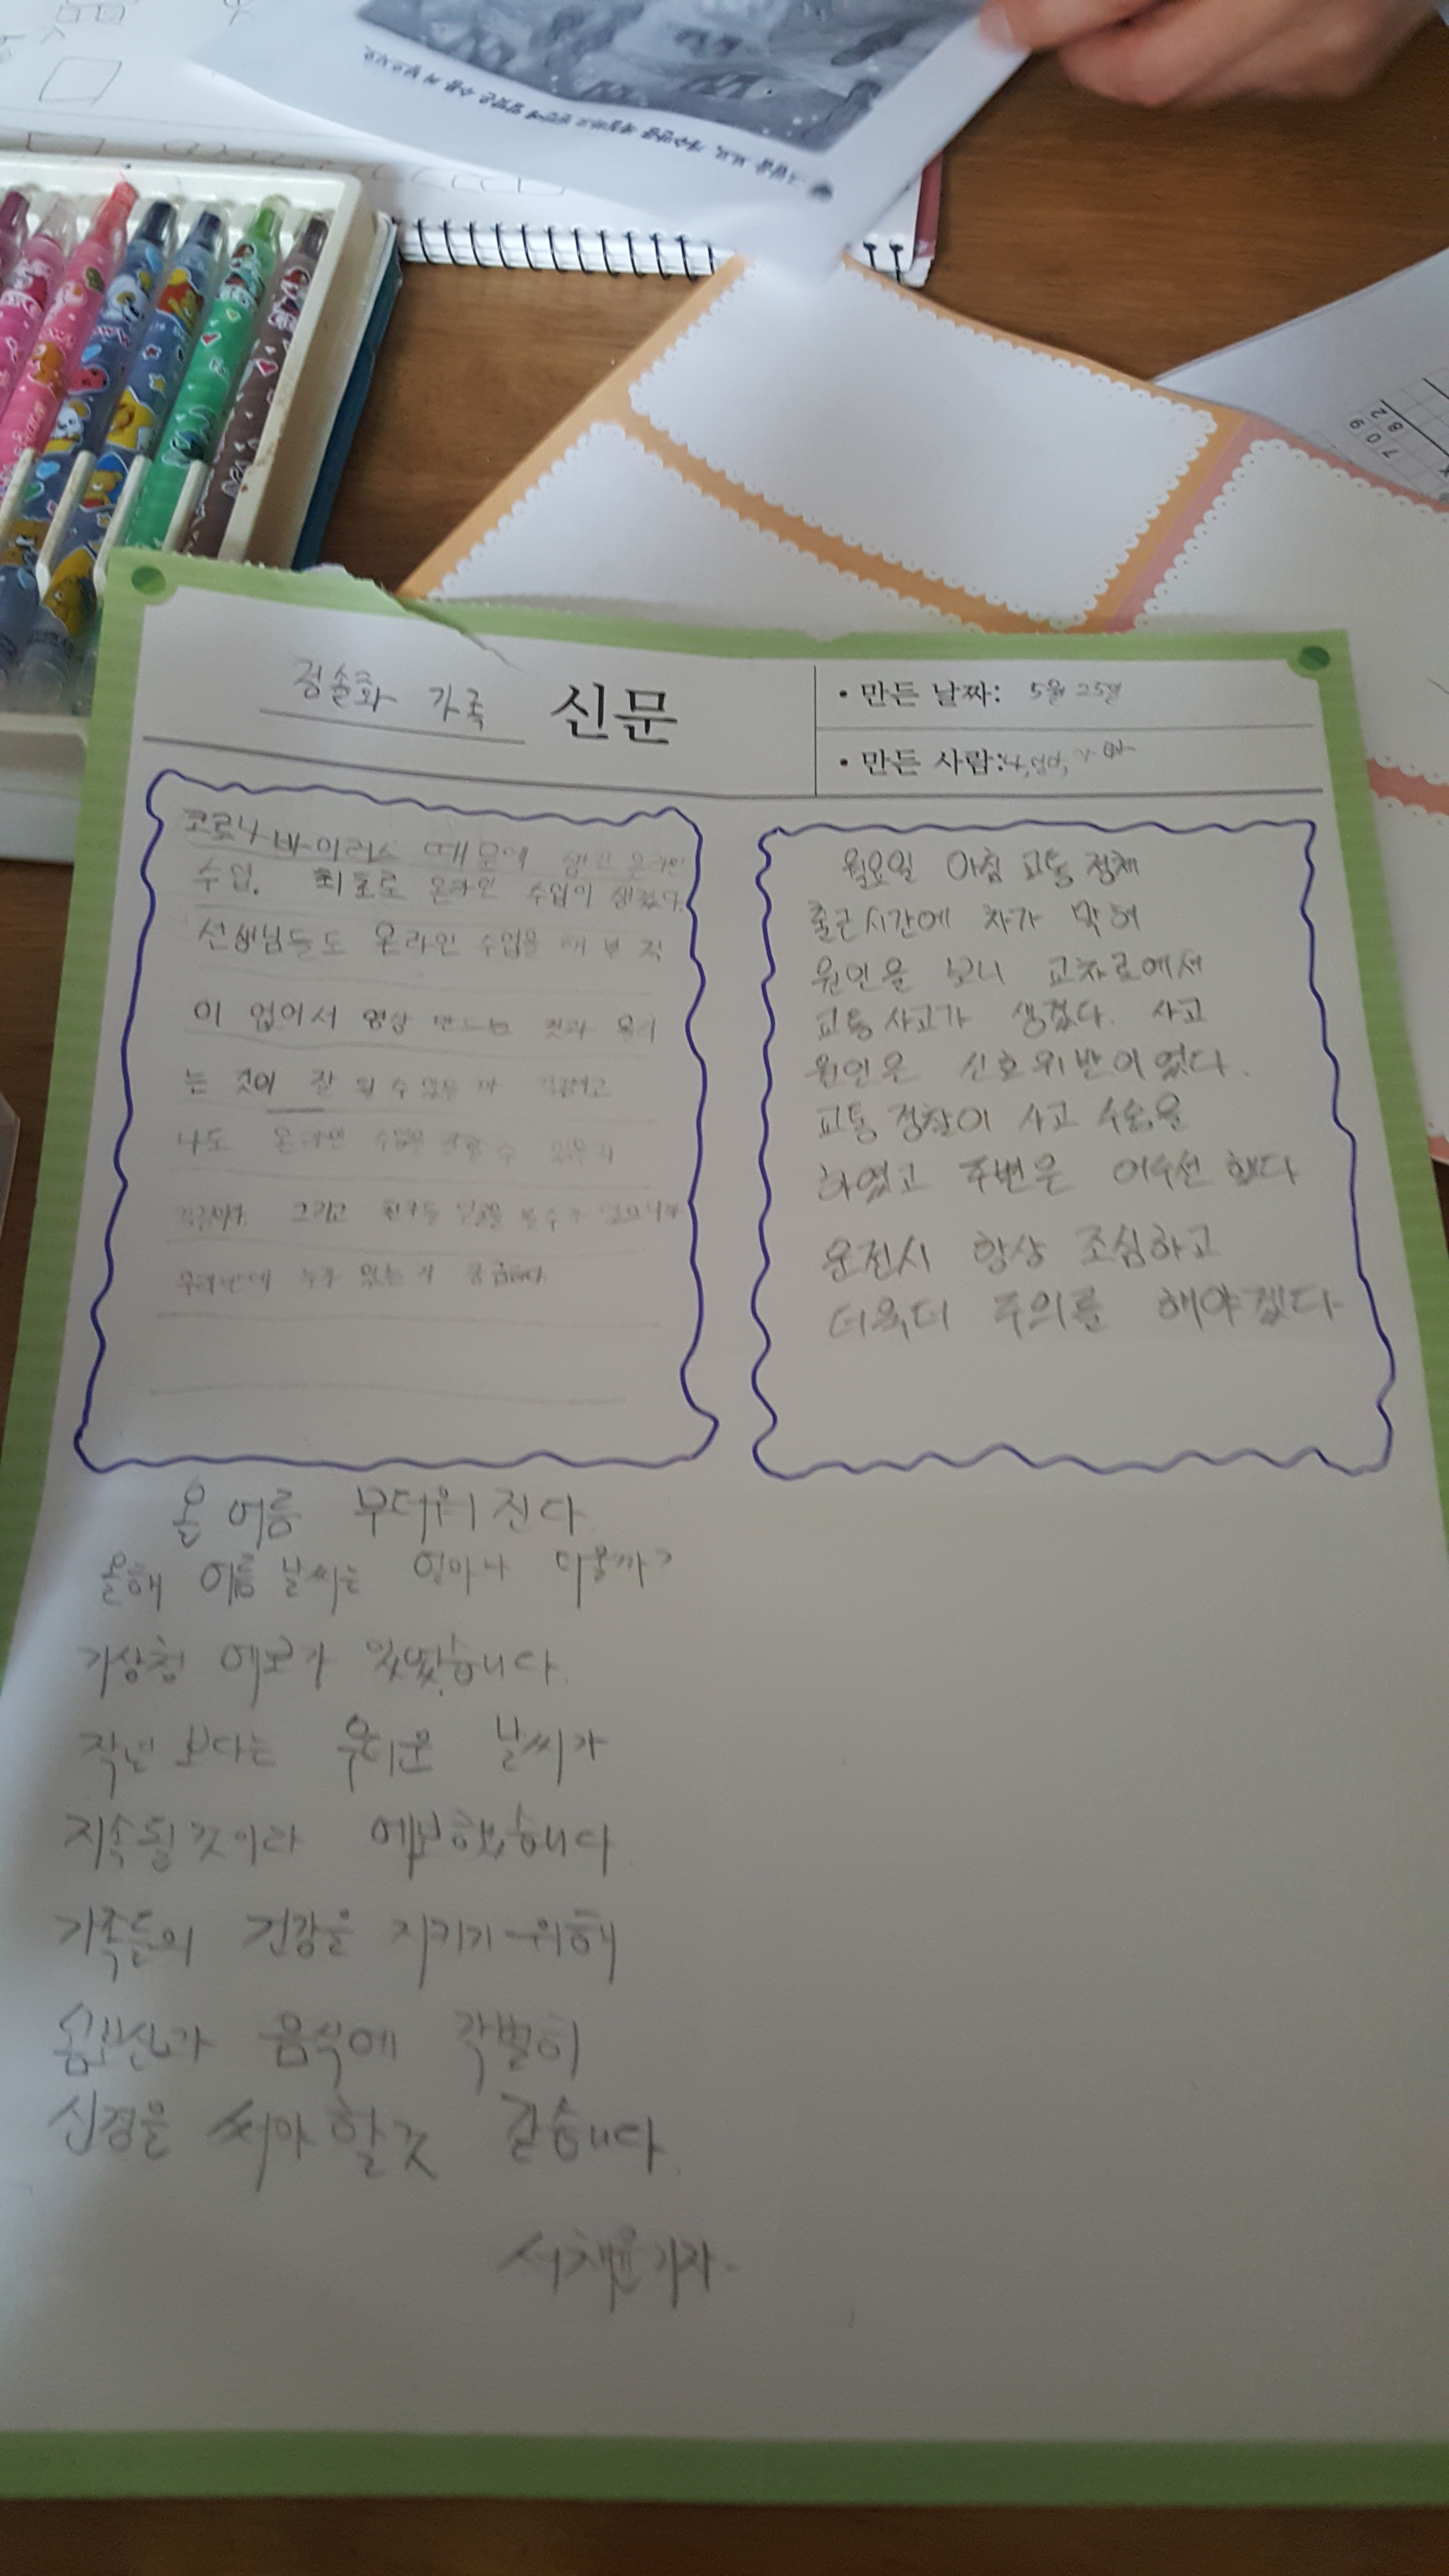 정솔화 가족 신문
• 만든 날짜: 5월 25일
• 만든 사람: 나, 엄마, 아빠
코로나 바이러스 때문에 생긴 온라인
수업. 최초로 온라인 수업이 생겼다.
선생님들도 온라인 수업을 해 본 적
이 없어서 영상 만드는 것과 올리
는 것이 잘 될 수 있는 까 걱정하고
나도 온라인 수업을 잘할 수 있을지
걱정이다. 그리고 친구들 얼굴을 볼 수가 없으니까
우리반에 누가 있는 지 궁금하다
월요일 아침 교통 정체
출근시간에 차가 막혀
원인을 보니 교차로에서
교통사고가 생겼다. 사고
원인은 신호위반이었다.
교통 경찰이 사고 수습을
하였고 주변은 어수선 했다
운전시 항상 조심하고
더욱더 주의를 해야겠다
올 여름 무더워 진다
올해 여름 날씨는 얼마나 더울까?
기상청 예보가 있었습니다.
작년 보다는 무더운 날씨가
지속될것이라 예보했습니다
가족들의 건강을 지키기 위해
음식에 각별히
신경을 써야 할것 같습니다.
서채윤기자-
709
82